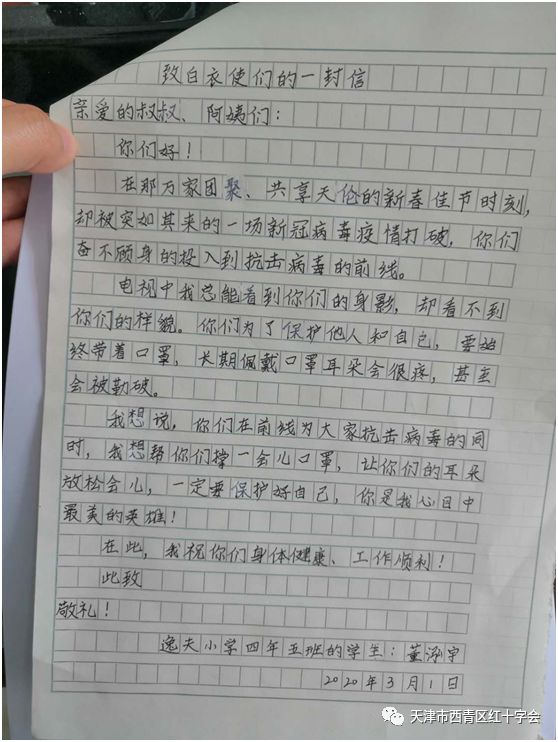 致白衣使们的一封信
亲爱的叔叔、阿姨们：
你们好！
在那万家团聚、共享天伦的新春佳节时刻，
却被突如其来的一场新冠病毒疫情打破，你们
奋不顾身的投入到抗击病毒的前线。
电视中我总能看到你们的身影，却看不到
你们的样貌。你们为了保护他人和自己，要始
终带着口罩，长期佩戴口罩耳朵会很疼，甚至
会被勒破。
我想说，你们在前线为大家抗击病毒的同
时，我想帮你们撑一会儿口罩，让你们的耳朵
放松会儿，一定要保护好自己，你是我心目中
最美的英雄！
在此，我祝你们身体健康、工作顺利！
此致
敬礼！
逸夫小学四年五班的学生：董泺宇
2020年3月1日
天津市西青区红十字会